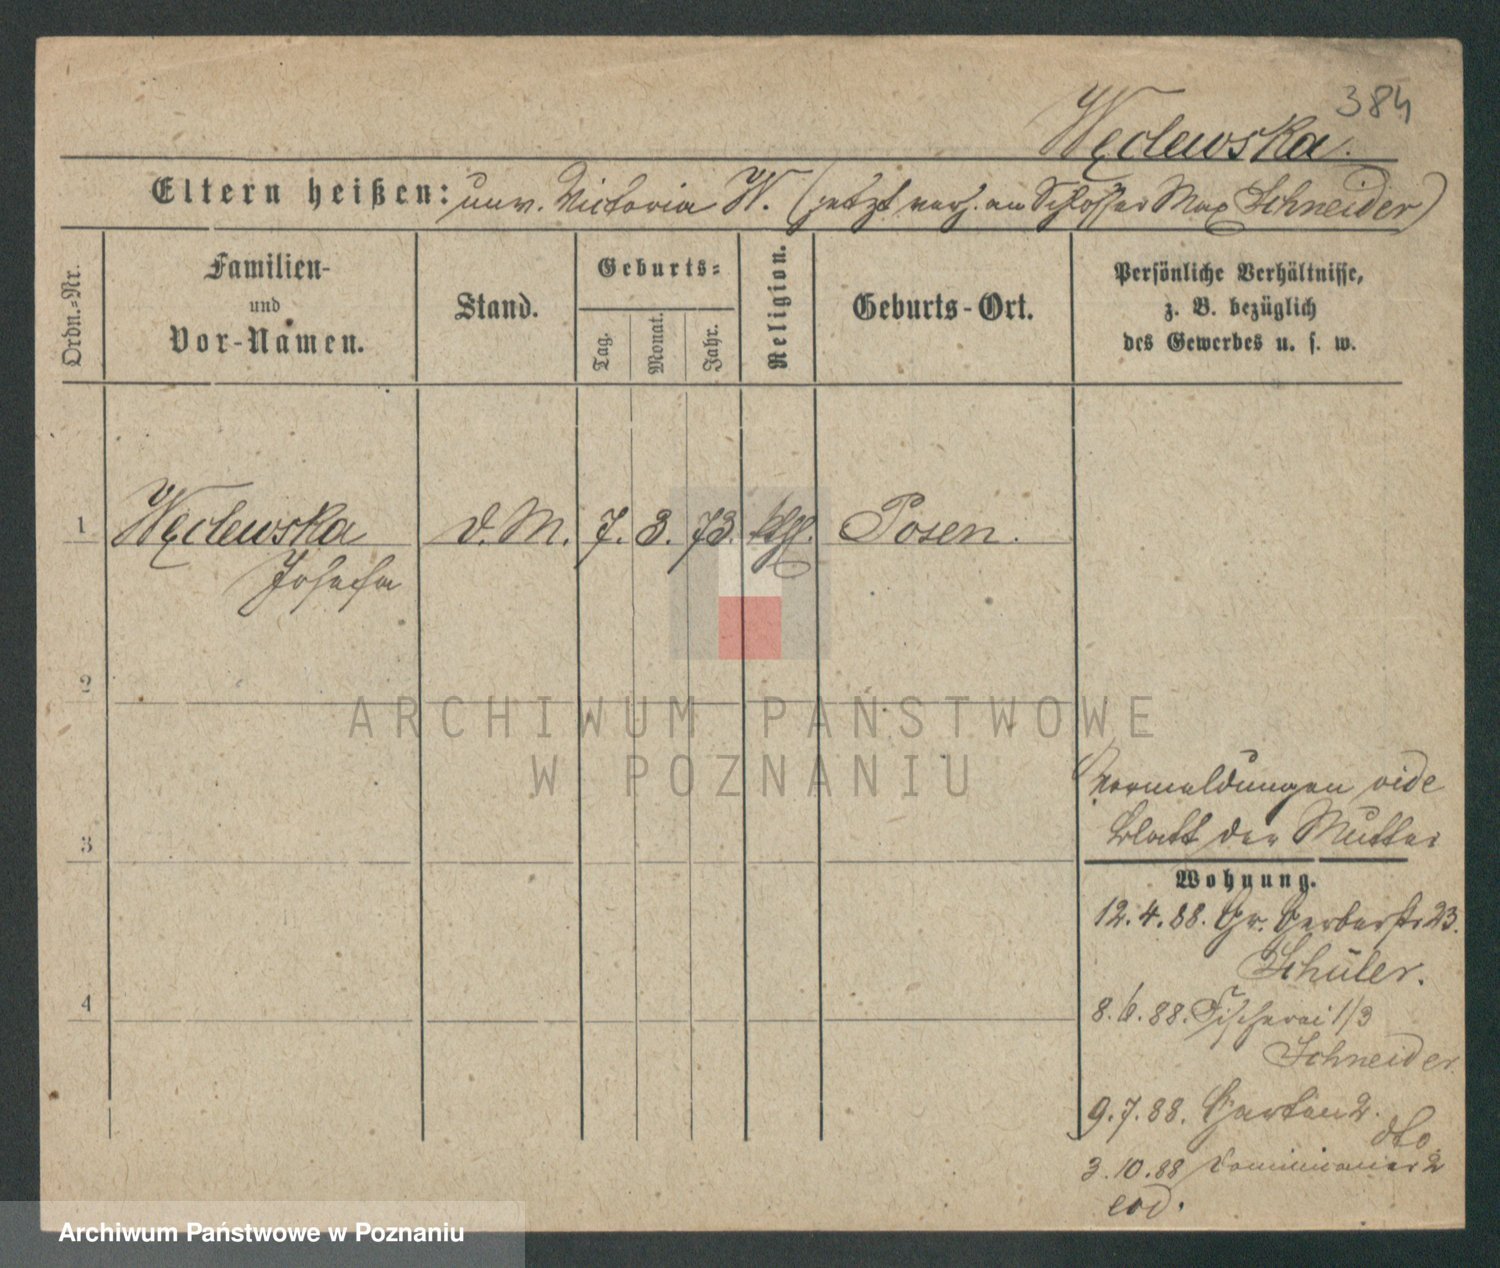 384
Węclewska.
Eltern heißen: unv. Victoria W. (jetzt verh. an Schlosser Max Schneider)
Ordn.-Nr.
Familien-
und
Vor-Namen.
Stand.
Geburts-
Tag.
Monat.
Jahr.
Religion.
Geburts-Ort.
Persönliche Verhältnisse,
z. B. bezüglich
des Gewerbes u. s. w.
1 Węclewska d. M. 7. 3. 73. ktħl. Posen.
Josefa
2
3
4
Vormeldungen vide
Blatt der Mutter
Wohnung.
12.4.88. Gr. Gerberstr 23.
Schüler.
8.6.88. Fischerei 1/3
Schneider.
9.7.88. Garten 2.
dto.
3.10.88 Dominicaner 2
eod.
ARCHIWUM PAŃSTWOWE
W POZNANIU
Archiwum Państwowe w Poznaniu